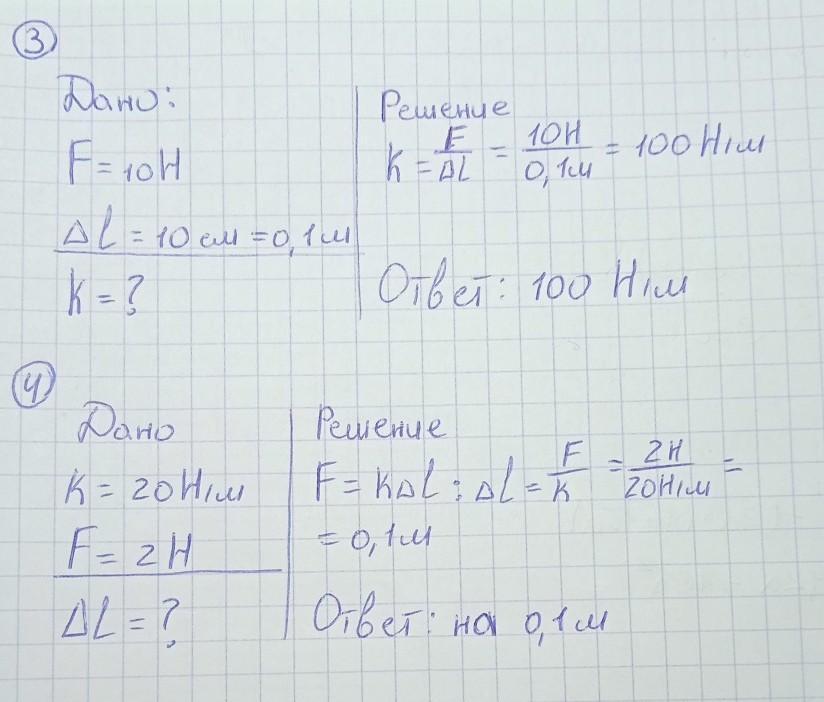 3
Дано:
F = 10Н
Δl = 10 см = 0,1м
K = ?
Решение
K = F/Δl = 10Н/0,1м = 100 Н/м
Ответ: 100 Н/м
4
Дано
K = 20Н/м
F = 2Н
Δl = ?
Решение
F = KΔl; Δl = F/K = 2Н/20Н/м =
= 0,1м
Ответ: на 0,1м